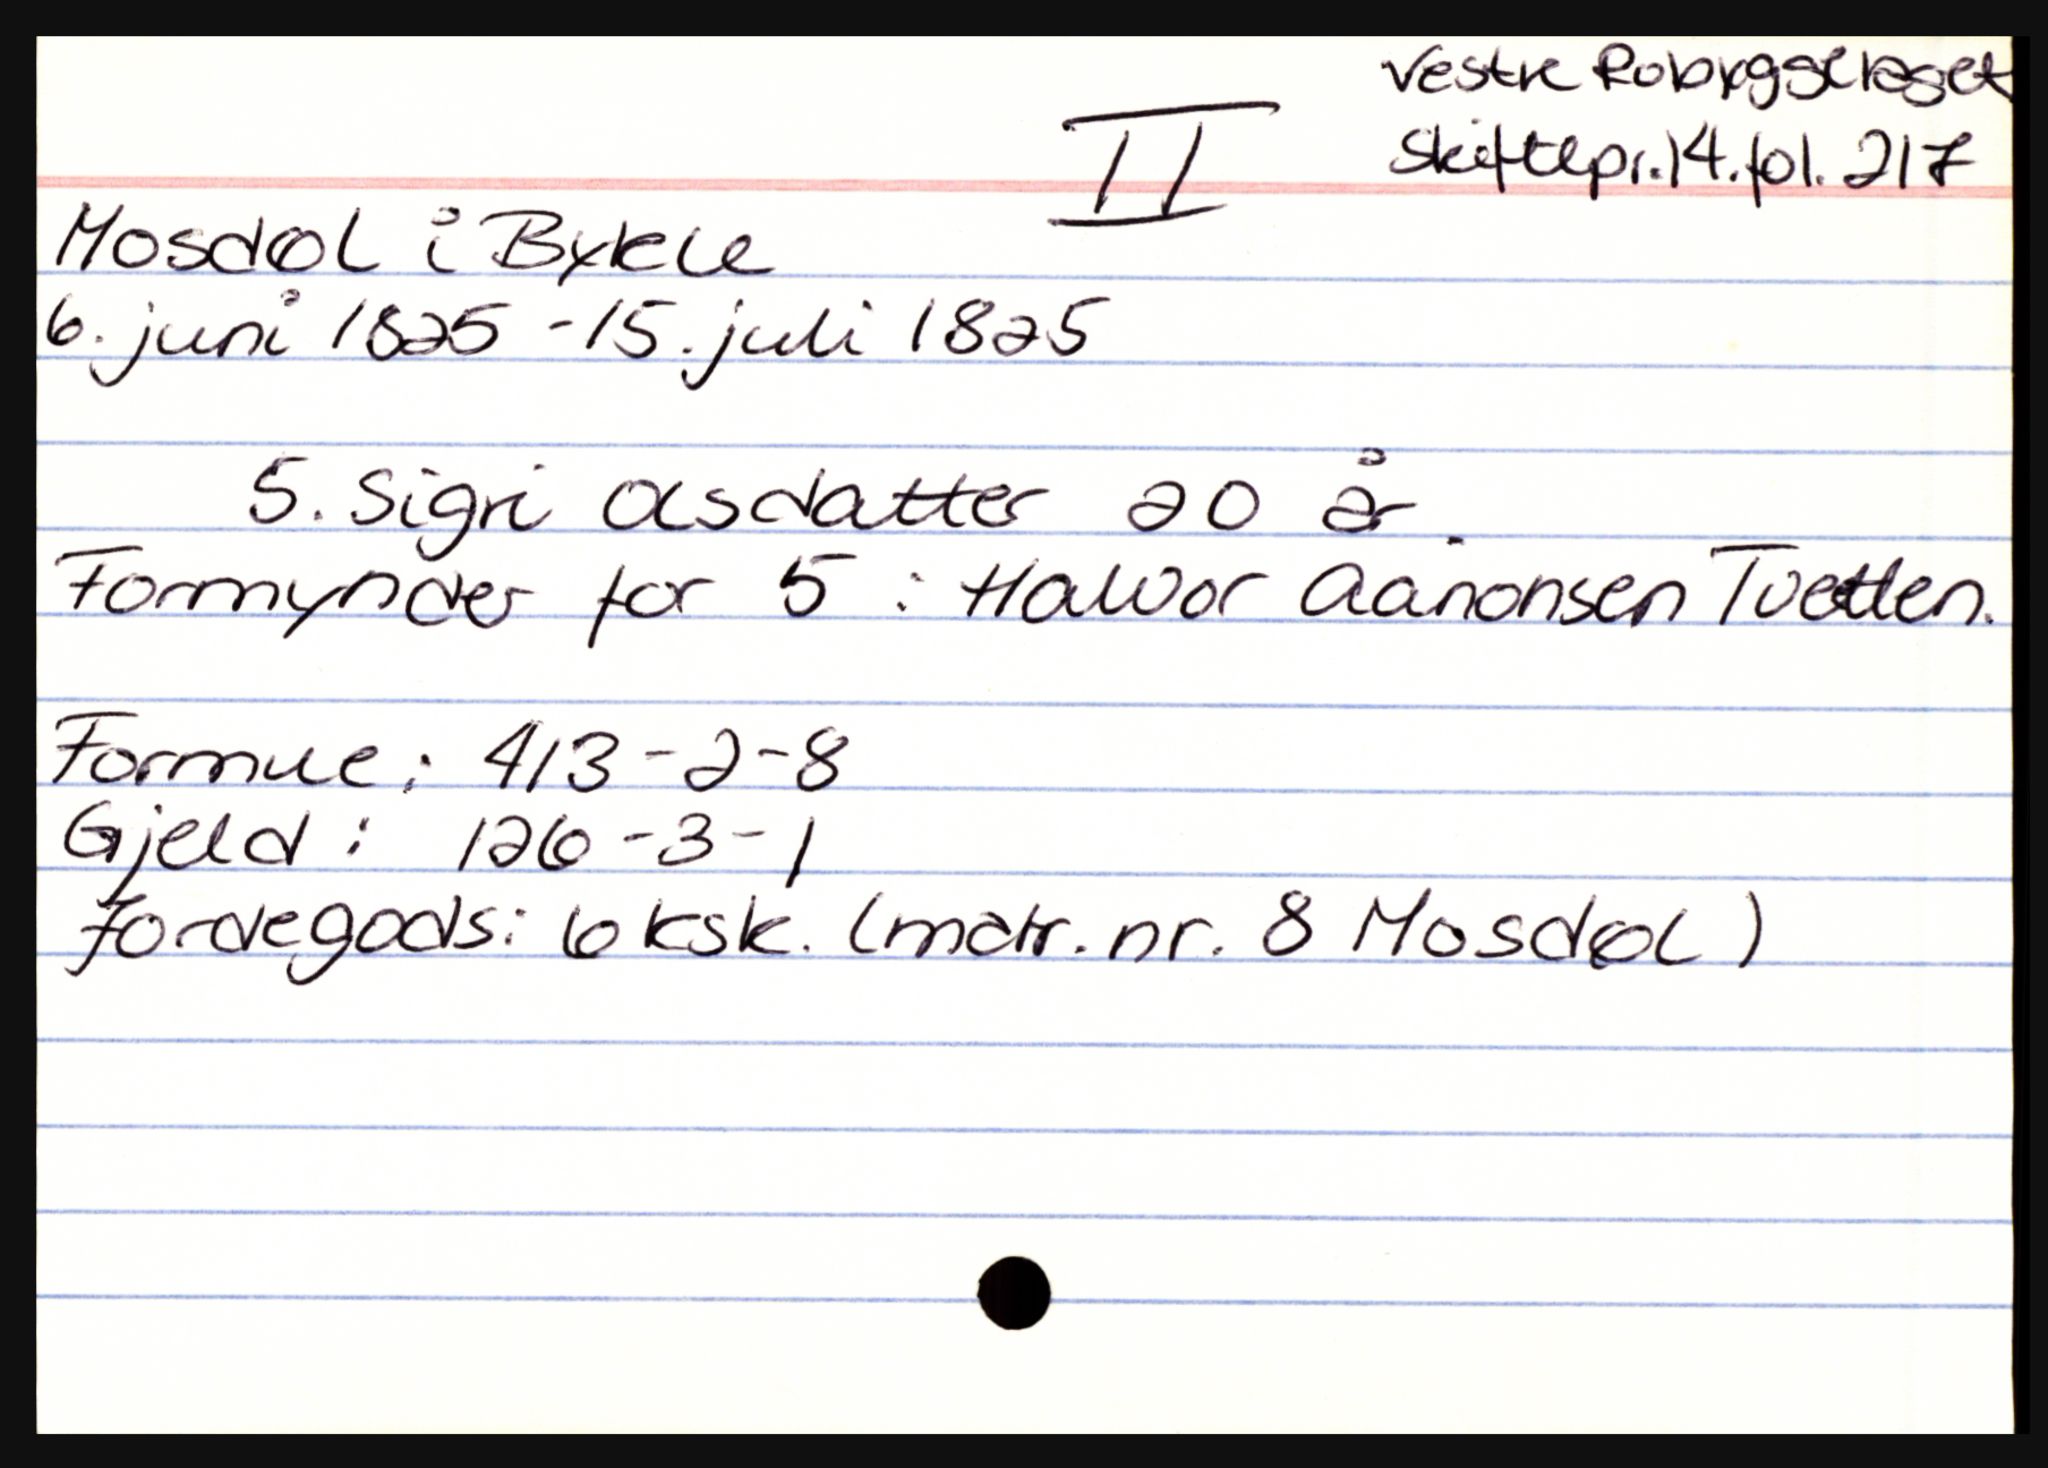 Vestre Robyggelaget
Skiftepr. 14. fol. 217
II
Mosdøl i Bykle
6. juni 1825 - 15. juli 1825
5. Sigri Olsdatter 20 år.
Formynder for 5 : Halvor Aanonsen Tveiten.
Formue: 413-2-8
Gjeld : 126-3-1
Jordegods: 6 ksk. (matr. nr. 8 Mosdøl)